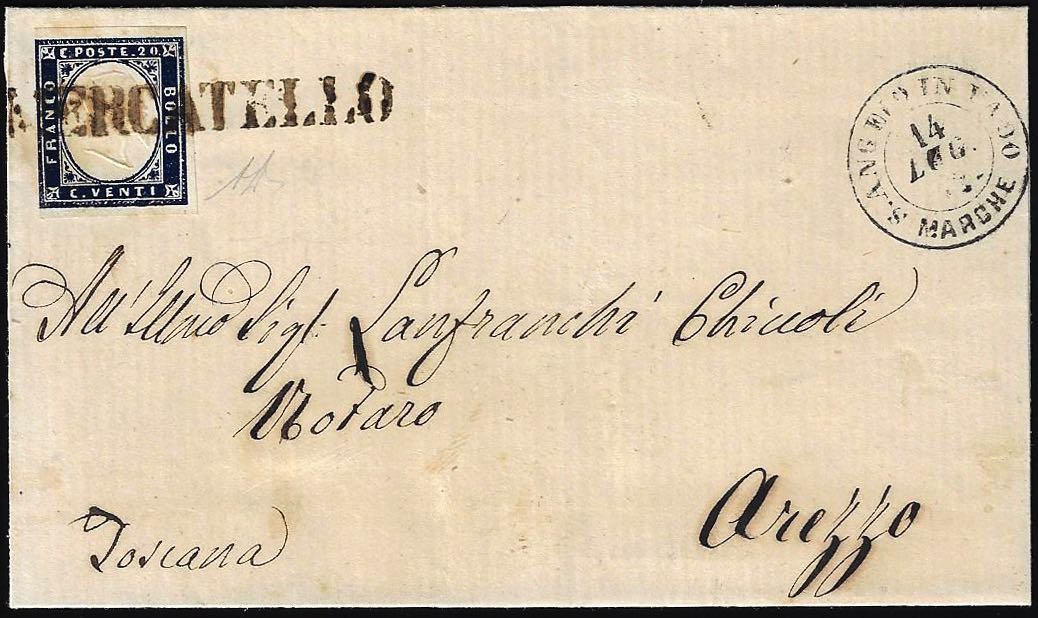 C. POSTE. 20.
FRANCO
BOLLO
C. VENTI
MERCATELLO
S. ANGELO IN VADO
14
LUG.
MARCHE
All' Illmo Sigr. Lanfranchi Chiuoli
Notaro
Arezzo
Toscana